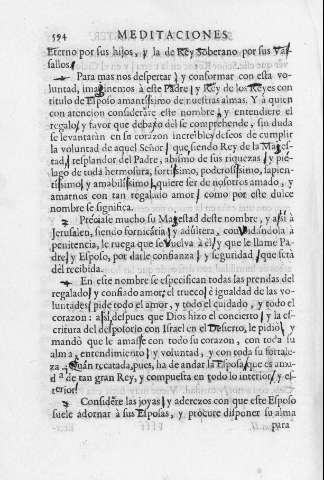 594 MEDITACIONES
Eterno por sus hijos, y la de Rey Soberano por sus Vas-
sallos.
Para mas nos despertar, y conformar con esta vo-
luntad, imaginemos à este Padre, y Rey de los Reyes con
titulo de Esposo amantissimo de nuestras almas. Y à quien
con atencion considerare este nombre, y entendiere el
regalo, y favor que debaxo dèl se comprehende, sin duda
se levantaràn en su corazon increibles deseos de cumplir
la voluntad de aquel Señor, que siendo Rey de la Mages-
tad, resplandor del Padre, abismo de sus riquezas, y pie-
lago de toda hermosura, fortissimo, poderosissimo, sapien-
tissimo, y amabilissimo, quiere ser de nosotros amado, y
amarnos con tan regalado amor, como por este dulce
nombre se significa.
Preciase mucho su Magestad deste nombre, y assi à
Jerusalen, siendo fornicaria, y adultera, convidandola à
penitencia, le ruega que se vuelva à èl, y que le llame Pa-
dre, y Esposo, por darle confianza, y seguridad, que serà
dèl recibida.
En este nombre se especifican todas las prendas del
regalado, y confiado amor, el trueco, è igualdad de las vo-
luntades, pide todo el amor, y todo el cuidado, y todo el
corazon: assi, despues que Dios hizo el concierto, y la es-
critura del desposorio con Israel en el Desierto, le pidiò, y
mandò que le amasse con todo su corazon, con toda su
alma, entendimiento, y voluntad, y con toda su fortale-
za. Quàn recatada, pues, ha de andar la Esposa, que es ama-
da de tan gran Rey, y compuesta en todo lo interior, y es-
terior.
Considere las joyas, y aderezos con que este Esposo
suele adornar à sus Esposas, y procure disponer su alma
para